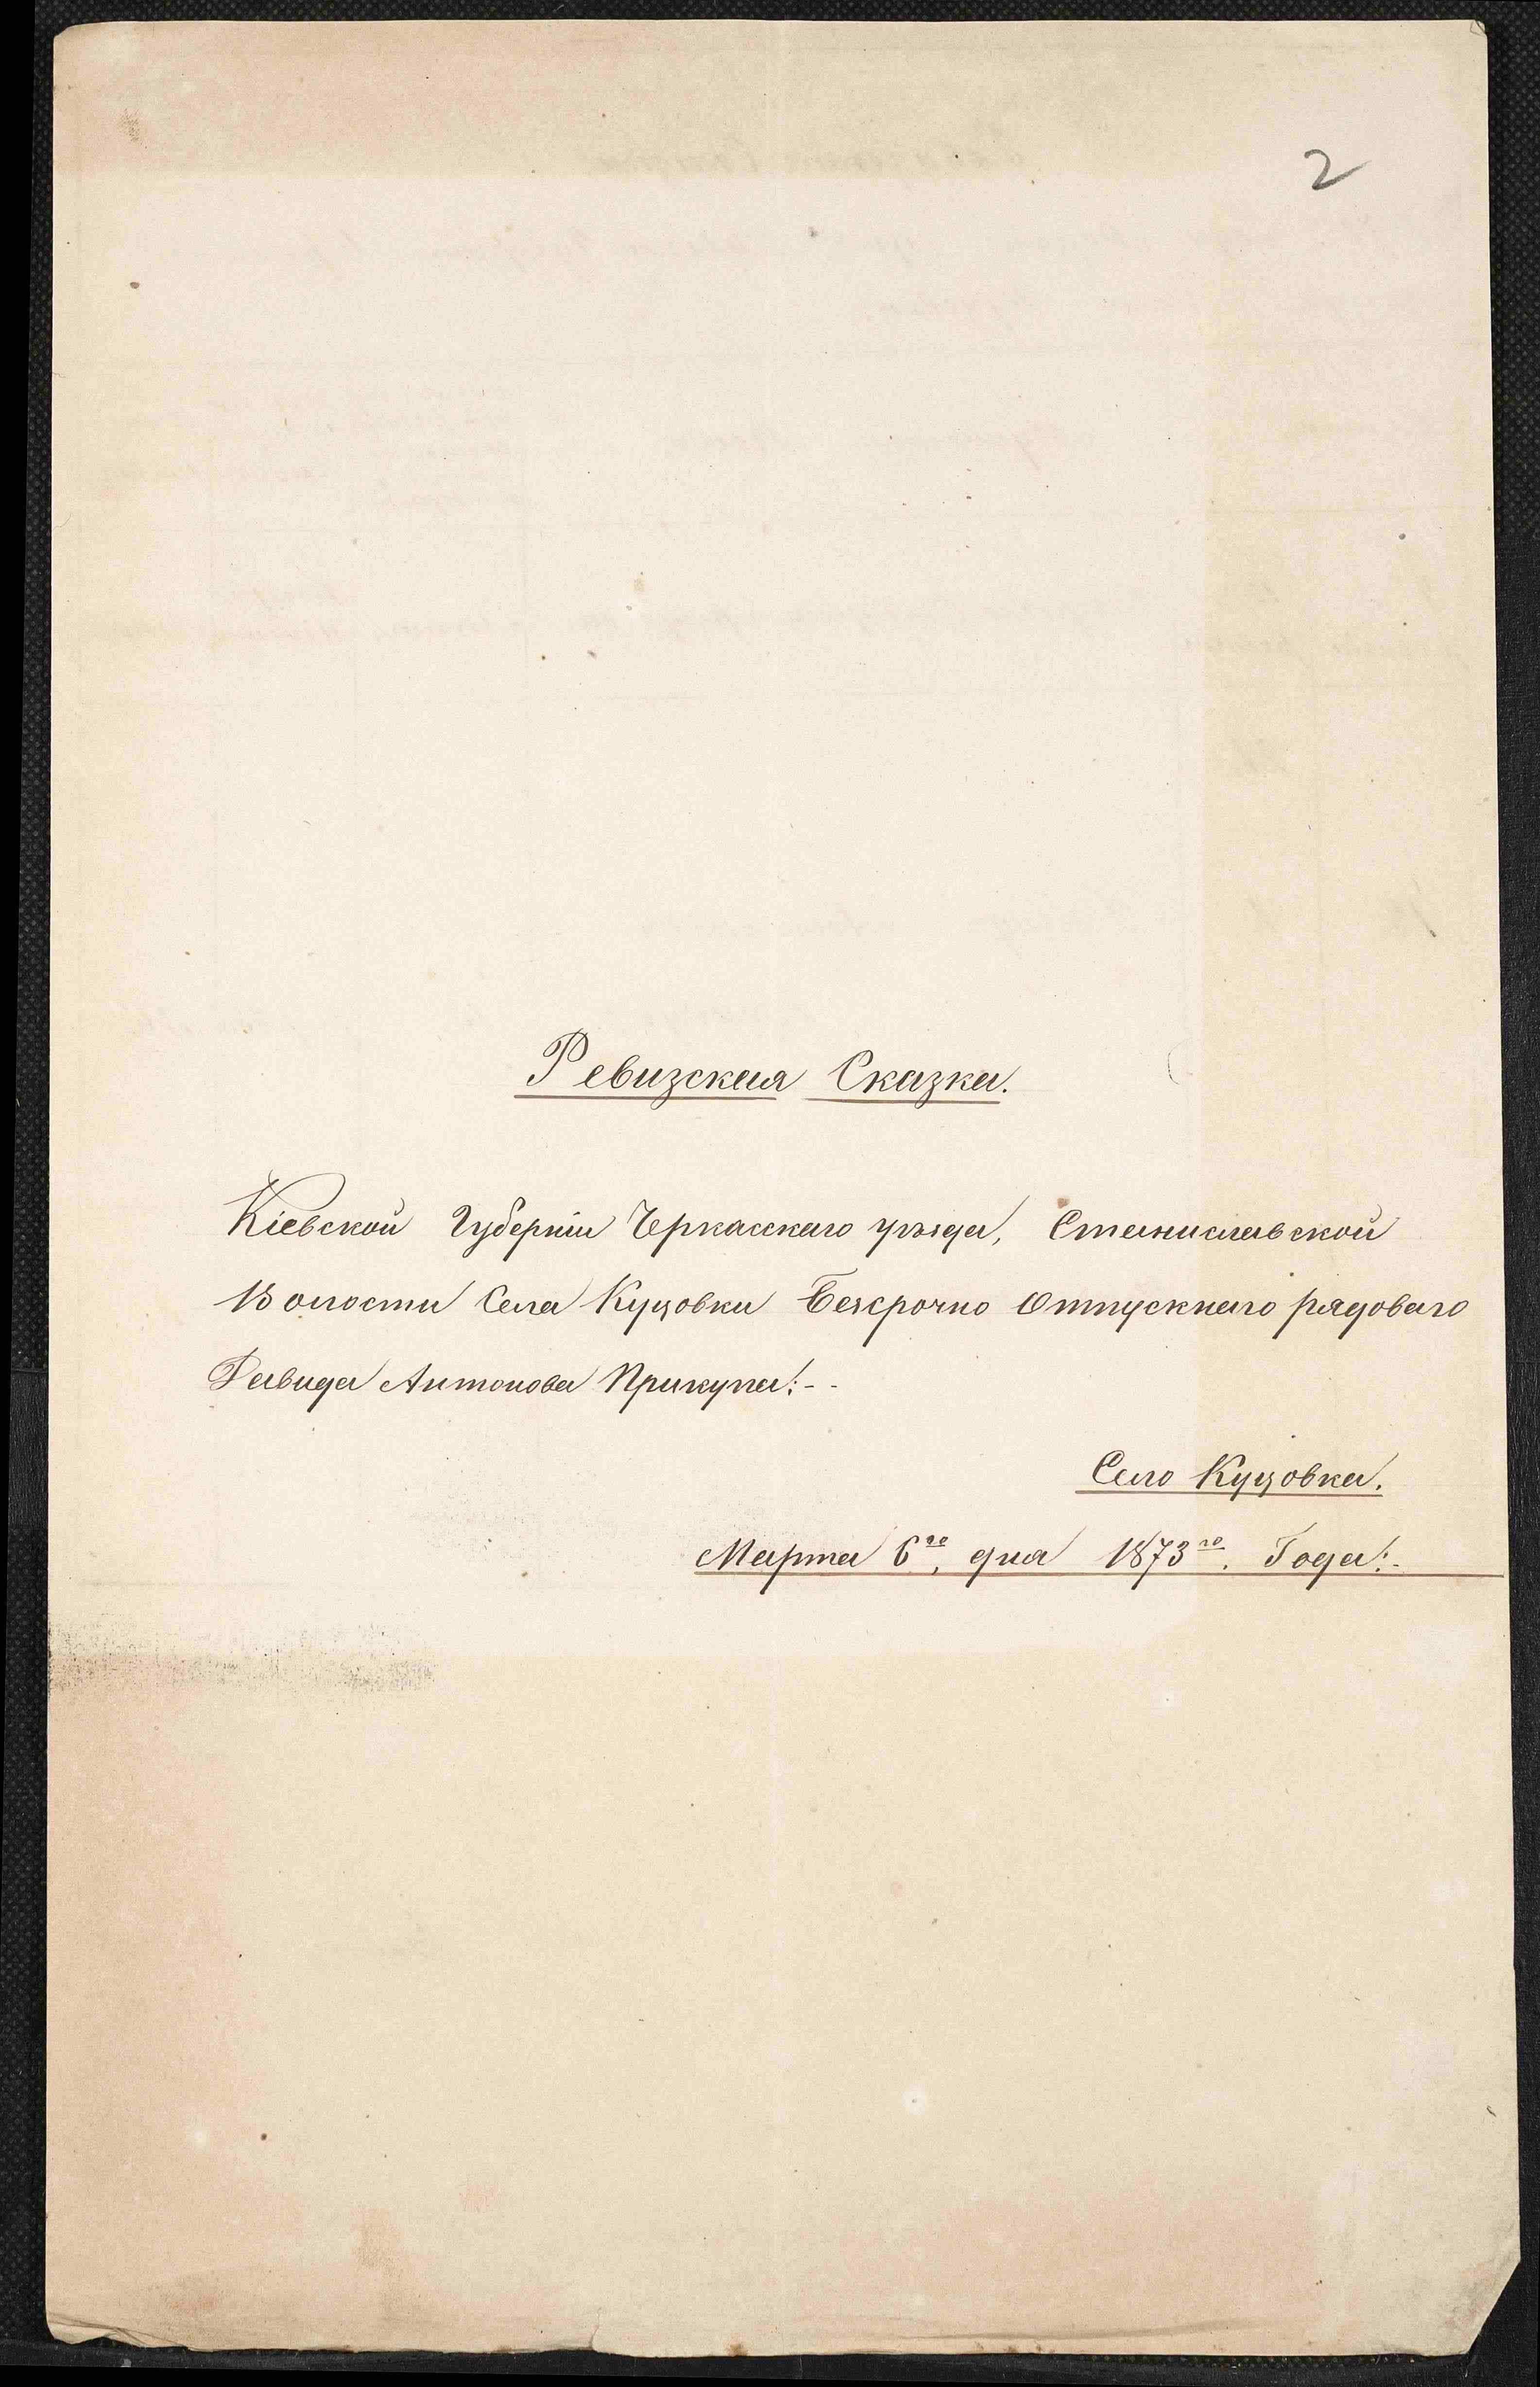 2
Ревизская Сказка.
Кіевской Губерніи Черкасскаго уѣзда, Станиславской
Волости Села Куцовки Безсрочно Отпускнаго рядоваго
Давида Антонова Прикупа:--
Село Куцовка.
Марта 6го, дня 1873го. Года:-